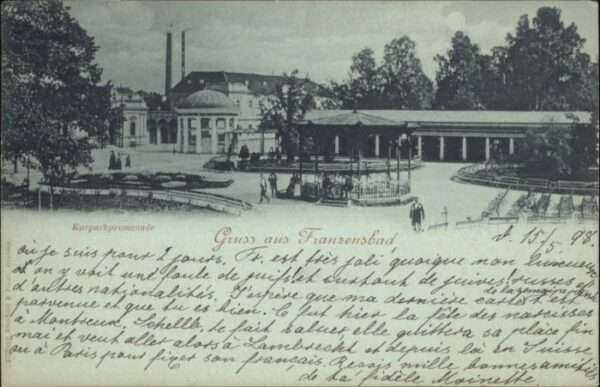 Kurparkpromenade
Gruss aus Franzensbad
d. 15/5. 98.
où je suis pour 2 jours. Fr. est très joli quoique non luxueux
et on y voit une foule de juifs et surtout de juives russes
d'autres nationalités. J'espère que ma dernière carte t'est
parvenue et que tu es bien. C'fut hier la fête des narcisses
à Montreux. Schelle te fait saluer elle quittera sa place fin
mai et veut aller alors à Lambrecht et depuis là en Suisse
ou à Paris pour finir son français. Reçois mille bonnes amitiés
de ta fidèle Moinette